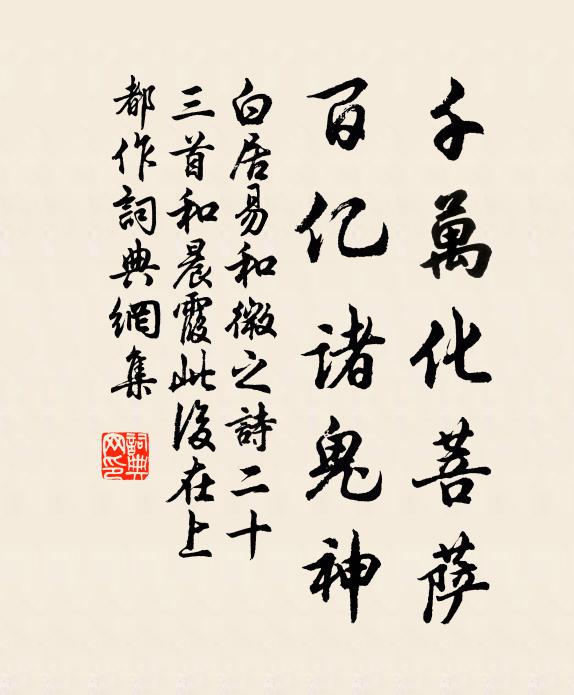 千萬化菩薩
百亿諸鬼神
白居易和微之詩二十
三首和晨霞此後在上
都作詞典網集
詞典網印